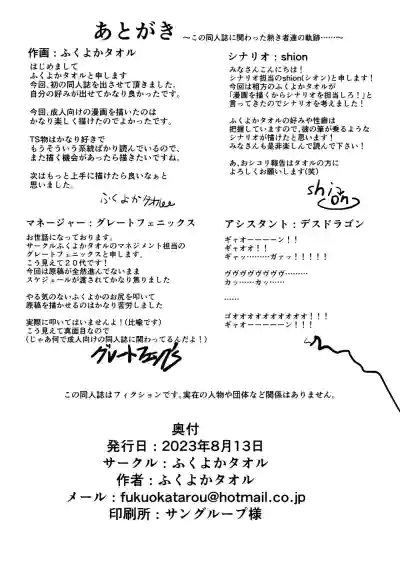 あとがき ～この同人誌に関わった熱き者達の軌跡……～
作画：ふくよかタオル
はじめまして
ふくよかタオルと申します
今回、初の同人誌を出させて頂きました。
自分の好みが出せてかなり良かったです。
今回、成人向けの漫画を描いたのは
かなり楽しく描けたのでよかったです。
TS物はかなり好きで
もうそういう系統ばかり読んでいるので、
また描く機会があったら描きたいですね。
次はもっと上手に描けたら良いなぁと
思いました。
シナリオ：shion
みなさんこんにちは！
シナリオ担当のshion(シオン)と申します！
今回は相方のふくよかタオルが
「漫画を描くからシナリオを担当しろ！」と
言ってきたのでシナリオを考えました！
ふくよかタオルの好みや性癖は
把握していますので、彼の筆が乗るような
シナリオが描けたと思います！
みなさんも是非楽しんで読んで下さい！
あ、おシコリ報告はタオルの方に
よろしくお願いします(笑)
shion
マネージャー：グレートフェニックス
お世話になっております。
サークルふくよかタオルのマネジメント担当の
グレートフェニックスと申します。
こう見えて２０代です！
今回は原稿が全然進んでないまま
スケジュールが渡されてかなり焦りました
やる気のないふくよかのお尻を叩いて
原稿を描かせるのはかなり苦労しました
実際に叩いてはいませんよ！(比喩です)
こう見えて真面目なので
(じゃあ何で成人向けの同人誌に関わってるんだよ！)
アシスタント：デスドラゴン
ギャオーーーーン！！
ギャオオ！！
ギャッ………ガァッ！！！！！
ヴヴヴヴヴヴヴヴ………
カッ……カッ……
……
ゴオオオオオオオオオオ！！！
ギャオーーーーン！！！
この同人誌はフィクションです。実在の人物や団体など関係はありません。
奥付
発行日：2023年8月13日
サークル：ふくよかタオル
作者：ふくよかタオル
メール：fukuokatarou@hotmail.co.jp
印刷所：サングループ様